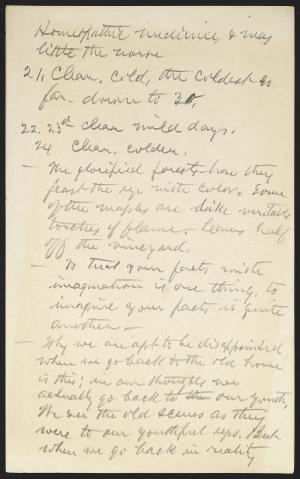 Homeopathic medicines, & was
little the worse
21, Clear, cold, the coldest so
far - down to 30,
22, 23d Clear mild days.
24 Clear, colder.
— The glorified forests - how they
feast the eye with color. Some
of the maples are like veritable
torches of flame. Leaves half
off the vineyard.
— To treat your facts with
imagination is one thing, to
imagine your facts is quite
another —
— Why we are apt to be disappointed
when we go back to the old home
is this; in our thoughts we
actually go back to our youth,
We see the old scenes as they
were to our youthful eyes. But
when we go back in reality